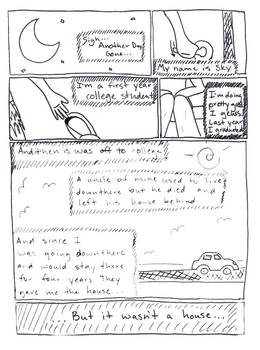 Sigh...
Another Day
Gone...
My name is Sky
I'm a first year
college student
I'm doing
pretty good
I guess.
Last year
I graduated
And then is was off to college
A uncle of mine used to live
downthere but he died and
left his house behind
And since I
was going downthere
and would stay there
for four years they
gave me the house...
...But it wasn't a house...